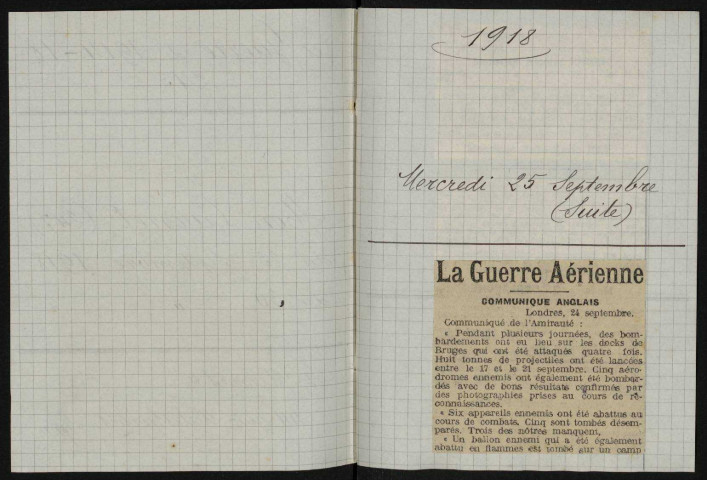 1918
Mercredi 25 Septembre
(Suite)
La Guerre Aérienne
COMMUNIQUE ANGLAIS
Londres, 24 septembre.
Communiqué de l'Amirauté :
« Pendant plusieurs journées, des bom-
bardements ont eu lieu sur les docks de
Bruges qui ont été attaqués quatre fois.
Huit tonnes de projectiles ont été lancées
entre le 17 et le 21 septembre. Cinq aéro-
dromes ennemis ont également été bombar-
dés avec de bons résultats confirmés par
des photographies prises au cours de re-
connaissances.
« Six appareils ennemis ont été abattus au
cours de combats. Cinq sont tombés désem-
parés. Trois des nôtres manquent.
« Un ballon ennemi qui a été également
abattu en flammes est tombé sur un camp